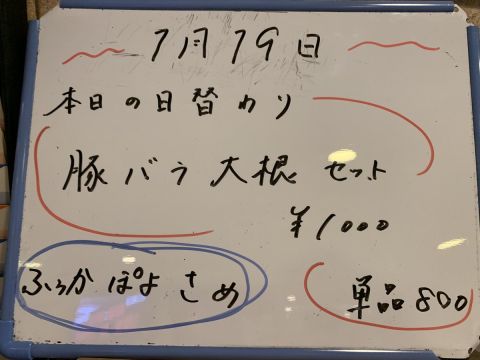 1月19日
本日の日替わり
豚バラ大根 セット
¥1000
ふっか ぽよ さめ
単品 800